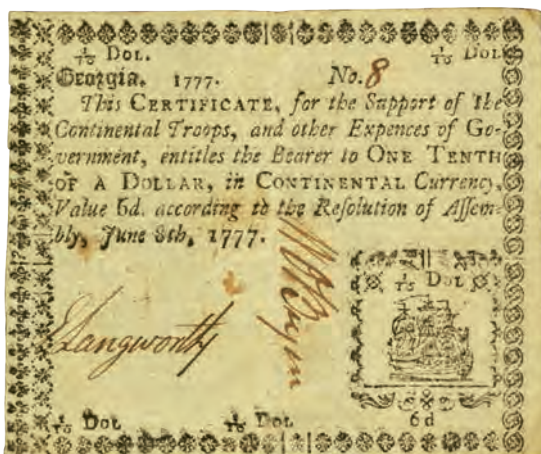 1/10 Dol. 1/10 Dol.
Georgia. 1777. No. 8
This CERTIFICATE, for the Support of the
Continental Troops, and other Expences of Go-
vernment, entitles the Bearer to ONE TENTH
OF A DOLLAR, in CONTINENTAL Currency,
Value 6d. according to the Resolution of Assem-
bly, June 8th, 1777.
1/10 Dol
Langworthy
1/10 Dol 1/10 Dol 6d